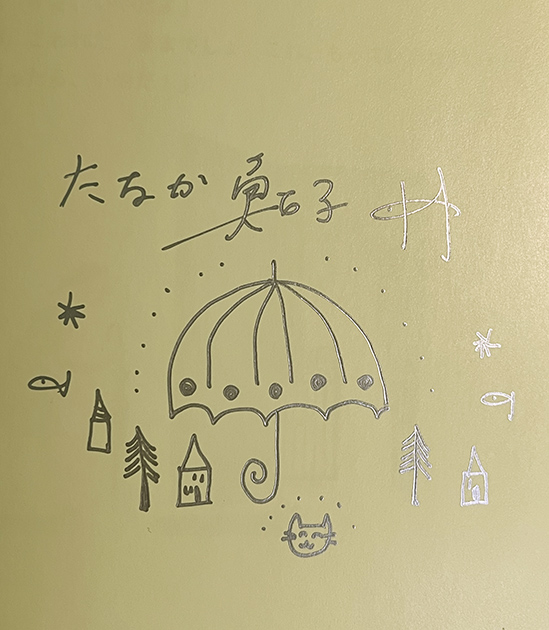 たなか 鮎子